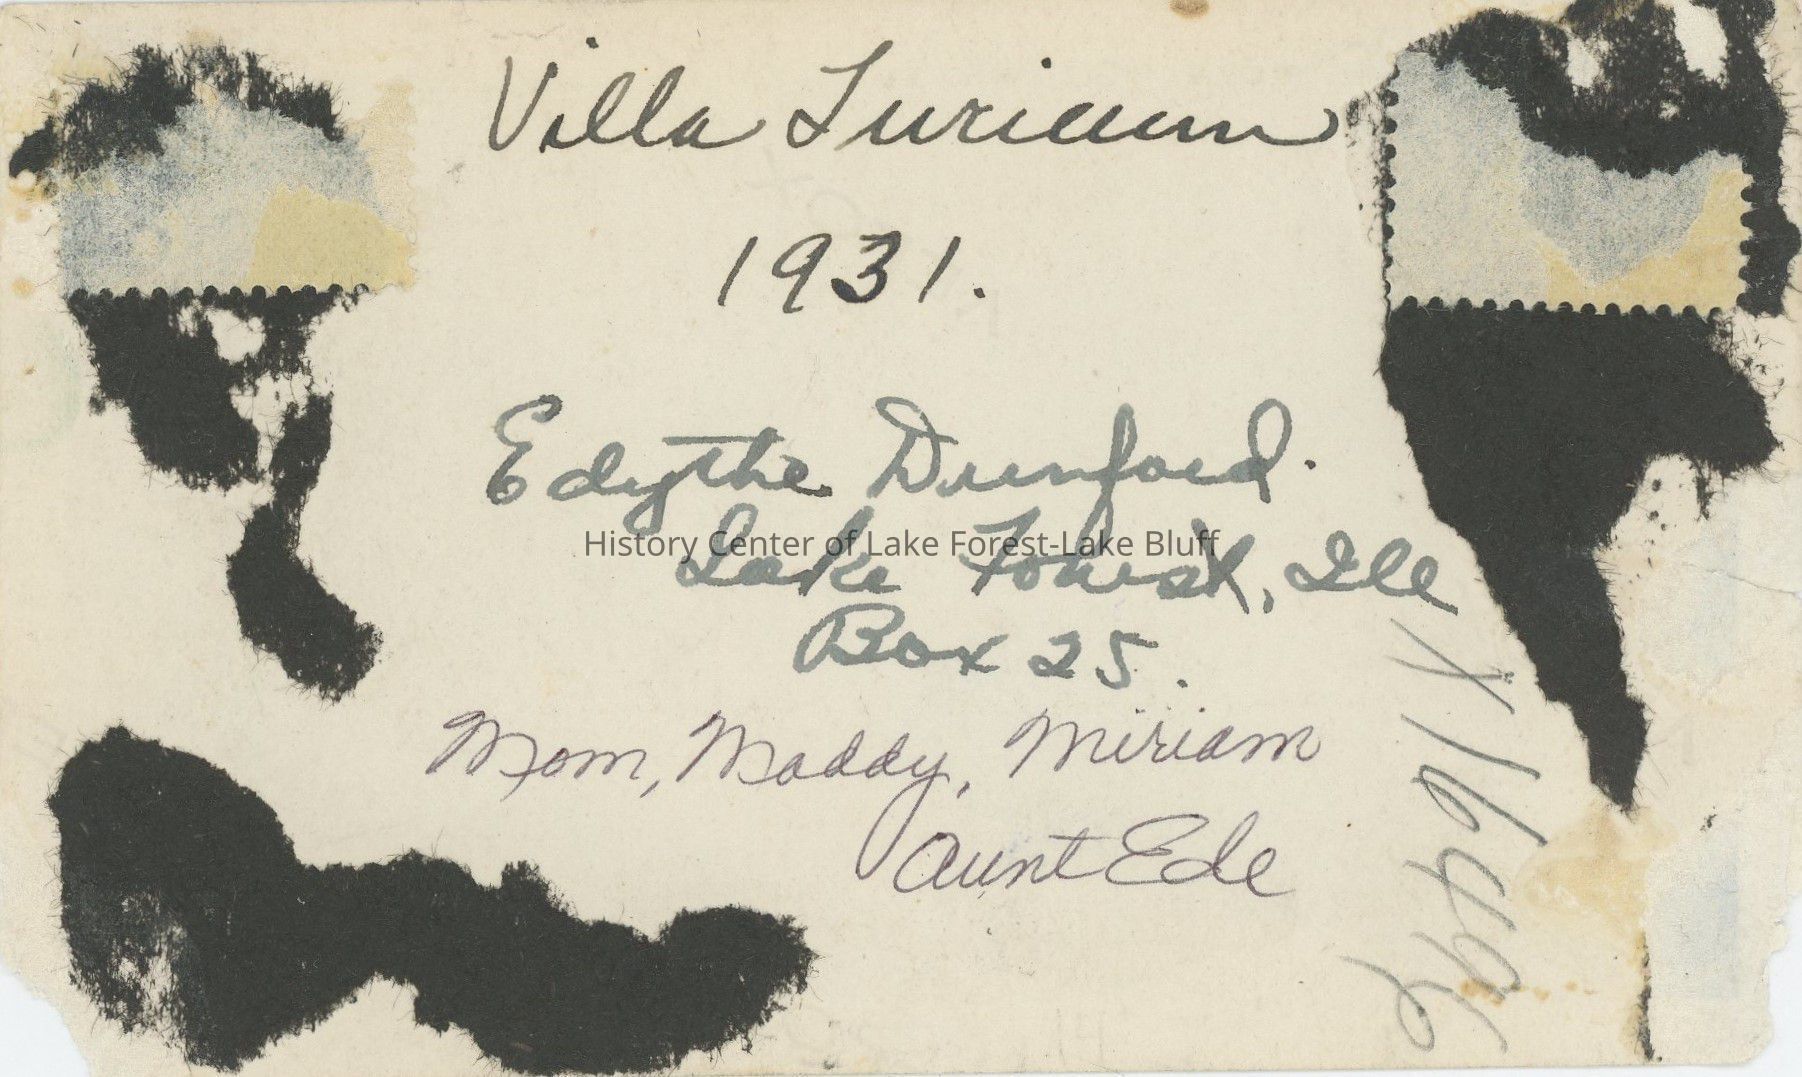 Villa Turicum
1931.
Edythe Dunford.
Lake Forest, Ill
Box 25.
Mom, Maddy, Miriam
Aunt Ede
History Center of Lake Forest-Lake Bluff